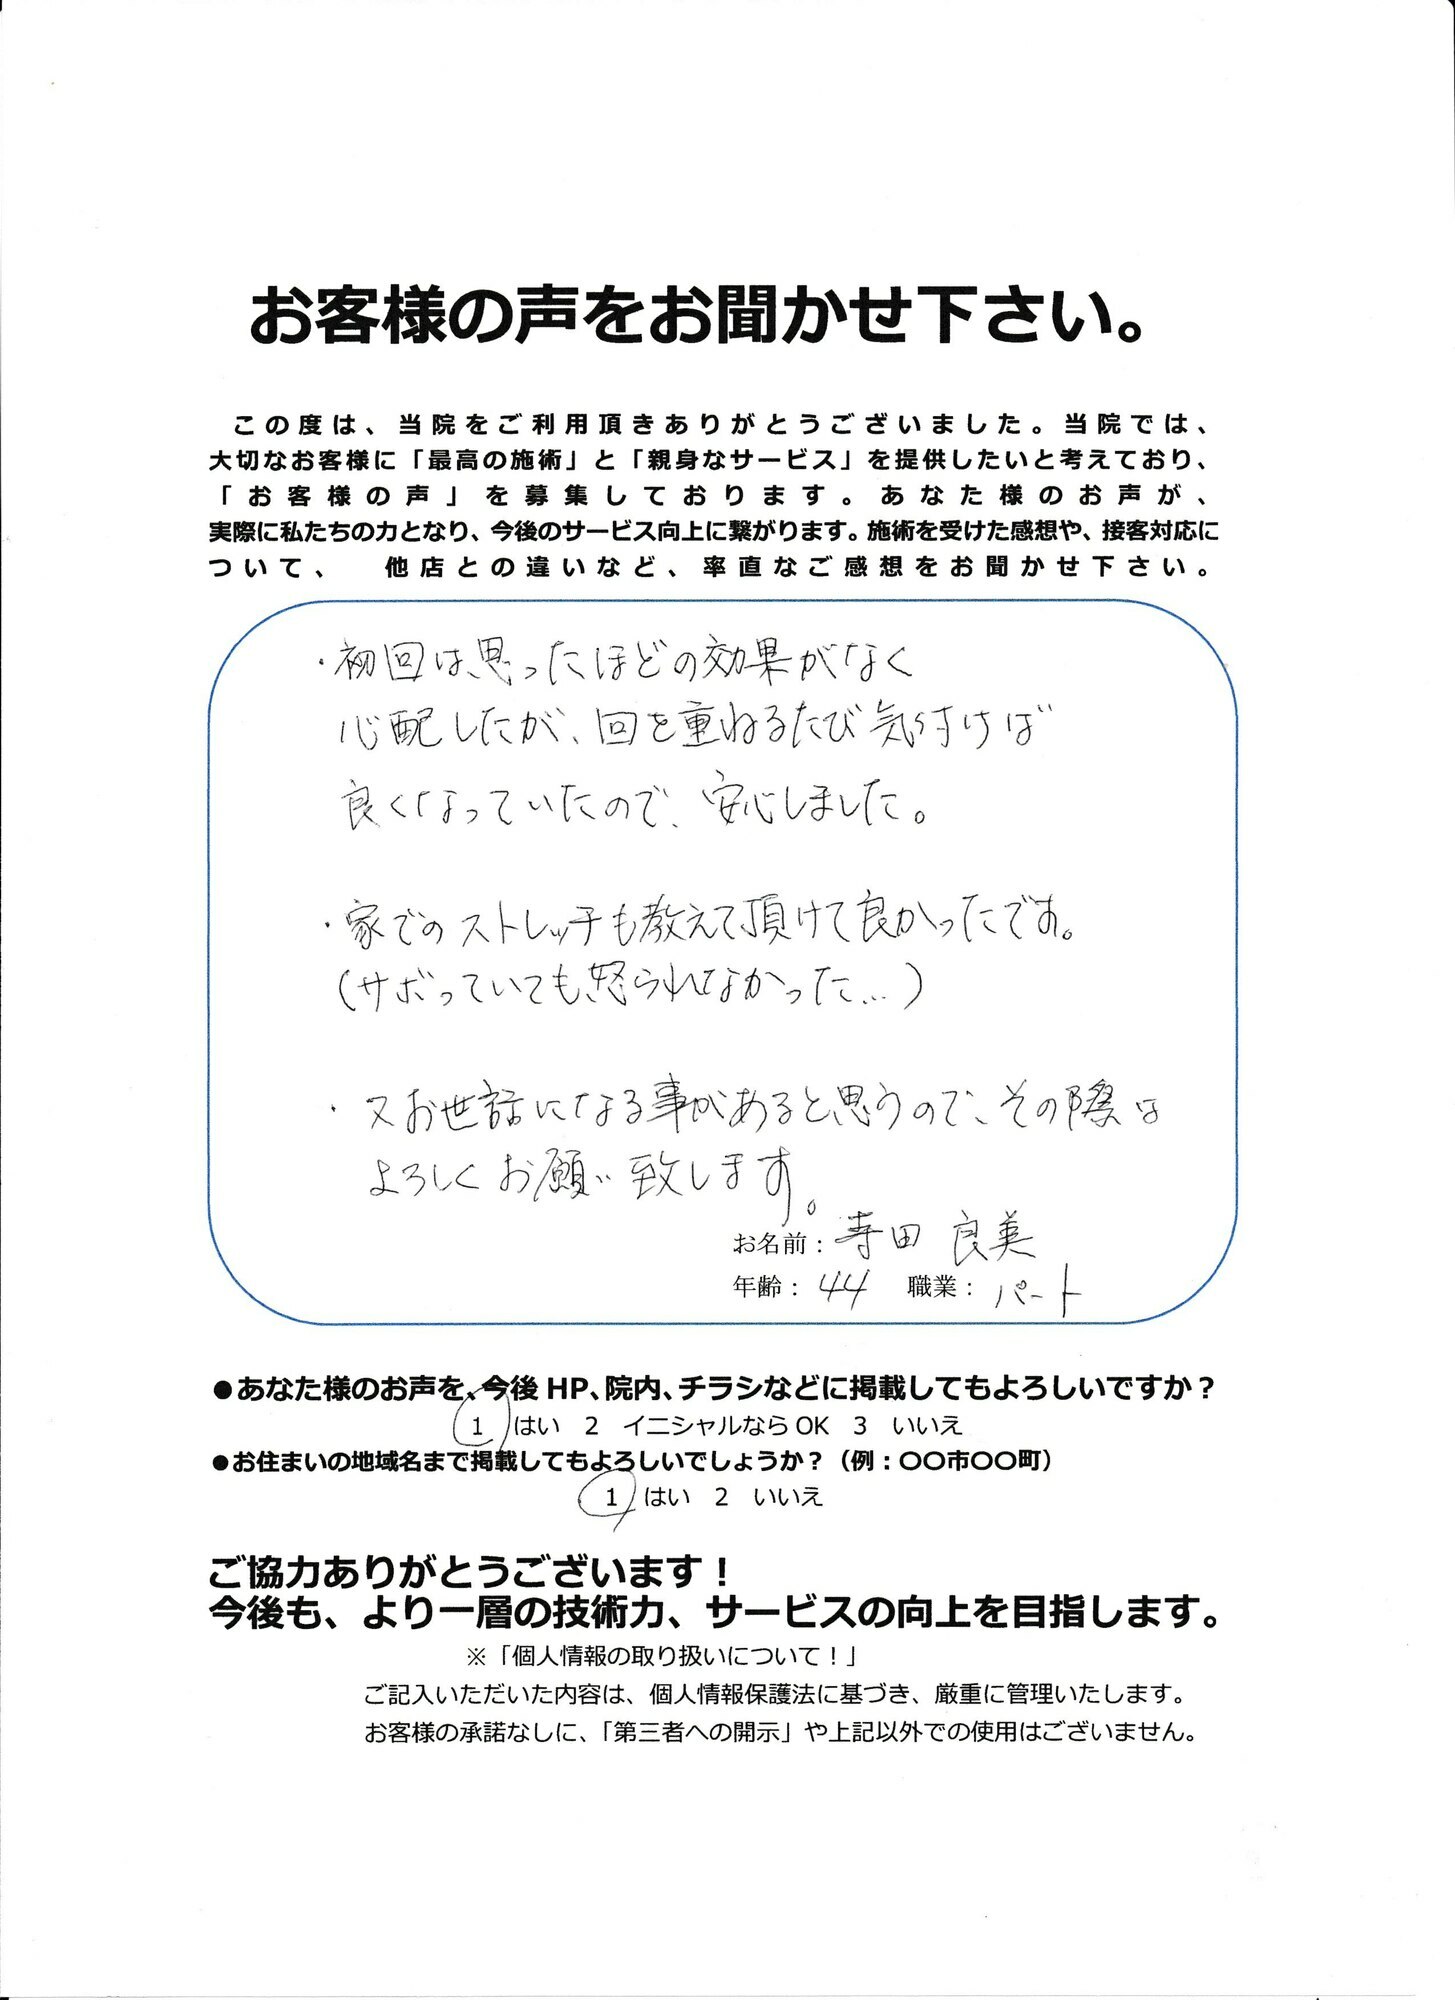 お客様の声をお聞かせ下さい。
この度は、当院をご利用頂きありがとうございました。当院では、
大切なお客様に「最高の施術」と「親身なサービス」を提供したいと考えており、
「お客様の声」を募集しております。あなた様のお声が、
実際に私たちの力となり、今後のサービス向上に繋がります。施術を受けた感想や、接客対応に
ついて、 他店との違いなど、率直なご感想をお聞かせ下さい。
・初回は、思ったほどの効果がなく
心配したが、回を重ねるたび気付けば
良くなっていたので、安心しました。
・家でのストレッチも教えて頂けて良かったです。
(サボっていても怒られなかった…)
・又お世話になる事があると思うので、その際は
よろしくお願い致します。
お名前：寺田 良美
年齢：44 職業：パート
●あなた様のお声を、今後HP、院内、チラシなどに掲載してもよろしいですか？
1 はい 2 イニシャルならOK 3 いいえ
●お住まいの地域名まで掲載してもよろしいでしょうか？（例：〇〇市〇〇町）
1 はい 2 いいえ
ご協力ありがとうございます！
今後も、より一層の技術力、サービスの向上を目指します。
※「個人情報の取り扱いについて！」
ご記入いただいた内容は、個人情報保護法に基づき、厳重に管理いたします。
お客様の承諾なしに、「第三者への開示」や上記以外での使用はございません。